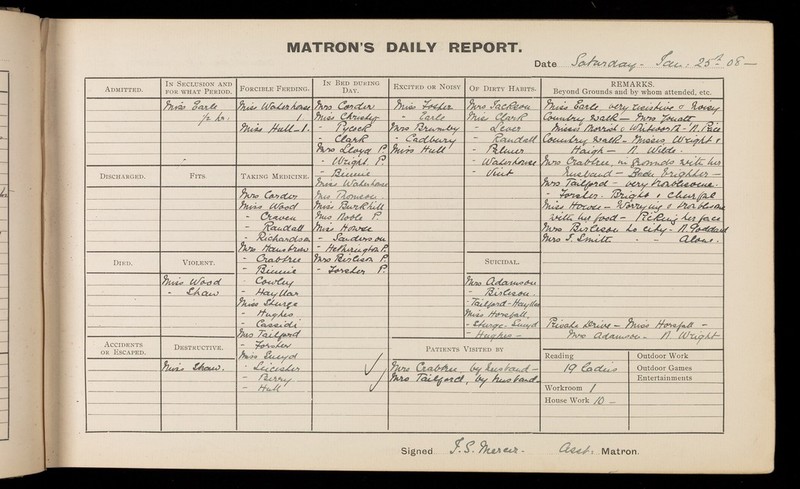 MATRON'S DAILY REPORT.
Date Saturday - Jan: 25th 08 —
ADMITTED.
IN SECLUSION AND FOR WHAT PERIOD.
Miss Earle
½ hr.
FORCIBLE FEEDING.
Miss Waterhouse
1
Miss Hull - 1.
IN BED DURING DAY.
Mrs Corder
Miss Christy
- Pycock
- Clark
Mrs Lloyd P
- Wright. P.
- Binnie
Miss Waterhouse
Mrs Thomson
Miss Burkhill
Mrs Noble P
Miss Howse
- Sanderson
- Hetherington P.
Mrs Birtison P.
- Forster P.
EXCITED OR NOISY
Miss Foster
- Earle
Mrs Brumby
- Cadbury
Miss Hull
OF DIRTY HABITS.
Mrs Jackson
Miss Clark
- Lever
- Randall
- Palmer
- Waterhouse
- Vint
REMARKS.
Beyond Grounds and by whom attended, etc.
Miss Earle very resistive & noisy
Country Walk — Mrs
Misses
Country Walk - Misses Wright &
Haigh — N. Wilde.
Mrs Crabtree, in grounds with her
husband — Been brighter —
Mrs Tailford - very troublesome.
- Forster. Bright & cheerful
Miss Howse - Worrying & troublesome
with her food - Picking her face
Mrs Birtison to city - N. Goddard
Mrs J. Smith - - Alone.
Private Drive - Miss Horsfall -
Mrs Adamson - N Wright
DISCHARGED.
FITS
TAKING MEDICINE.
Mrs Corder
Miss Wood
- Craven
- Randall
- Richardson
Mrs
- Crabtree
- Binnie
- Cowley
- Hayllar
Miss Sturge
- Hughes
- Cassidi
Mrs Tailford
- Forster
Miss Lueyd
- Leicester
- Perry
- Hull
DIED.
VIOLENT.
Miss Wood
- Shaw
SUICIDAL.
Mrs Adamson
- Birtison
- Tailford - Hayllar
Miss Horsfall.
- Sturge - Lueyd
- Hughes -
ACCIDENTS OR ESCAPED.
DESTRUCTIVE.
Miss Shaw.
PATIENTS VISITED BY
Mrs Crabtree by husband -
Mrs Tailford, by husband -
Reading
19 Ladies
Workroom 1
House Work 10 -
Outdoor Work
Outdoor Games
Entertainments
Signed J. S. Mercer - Asst. Matron.